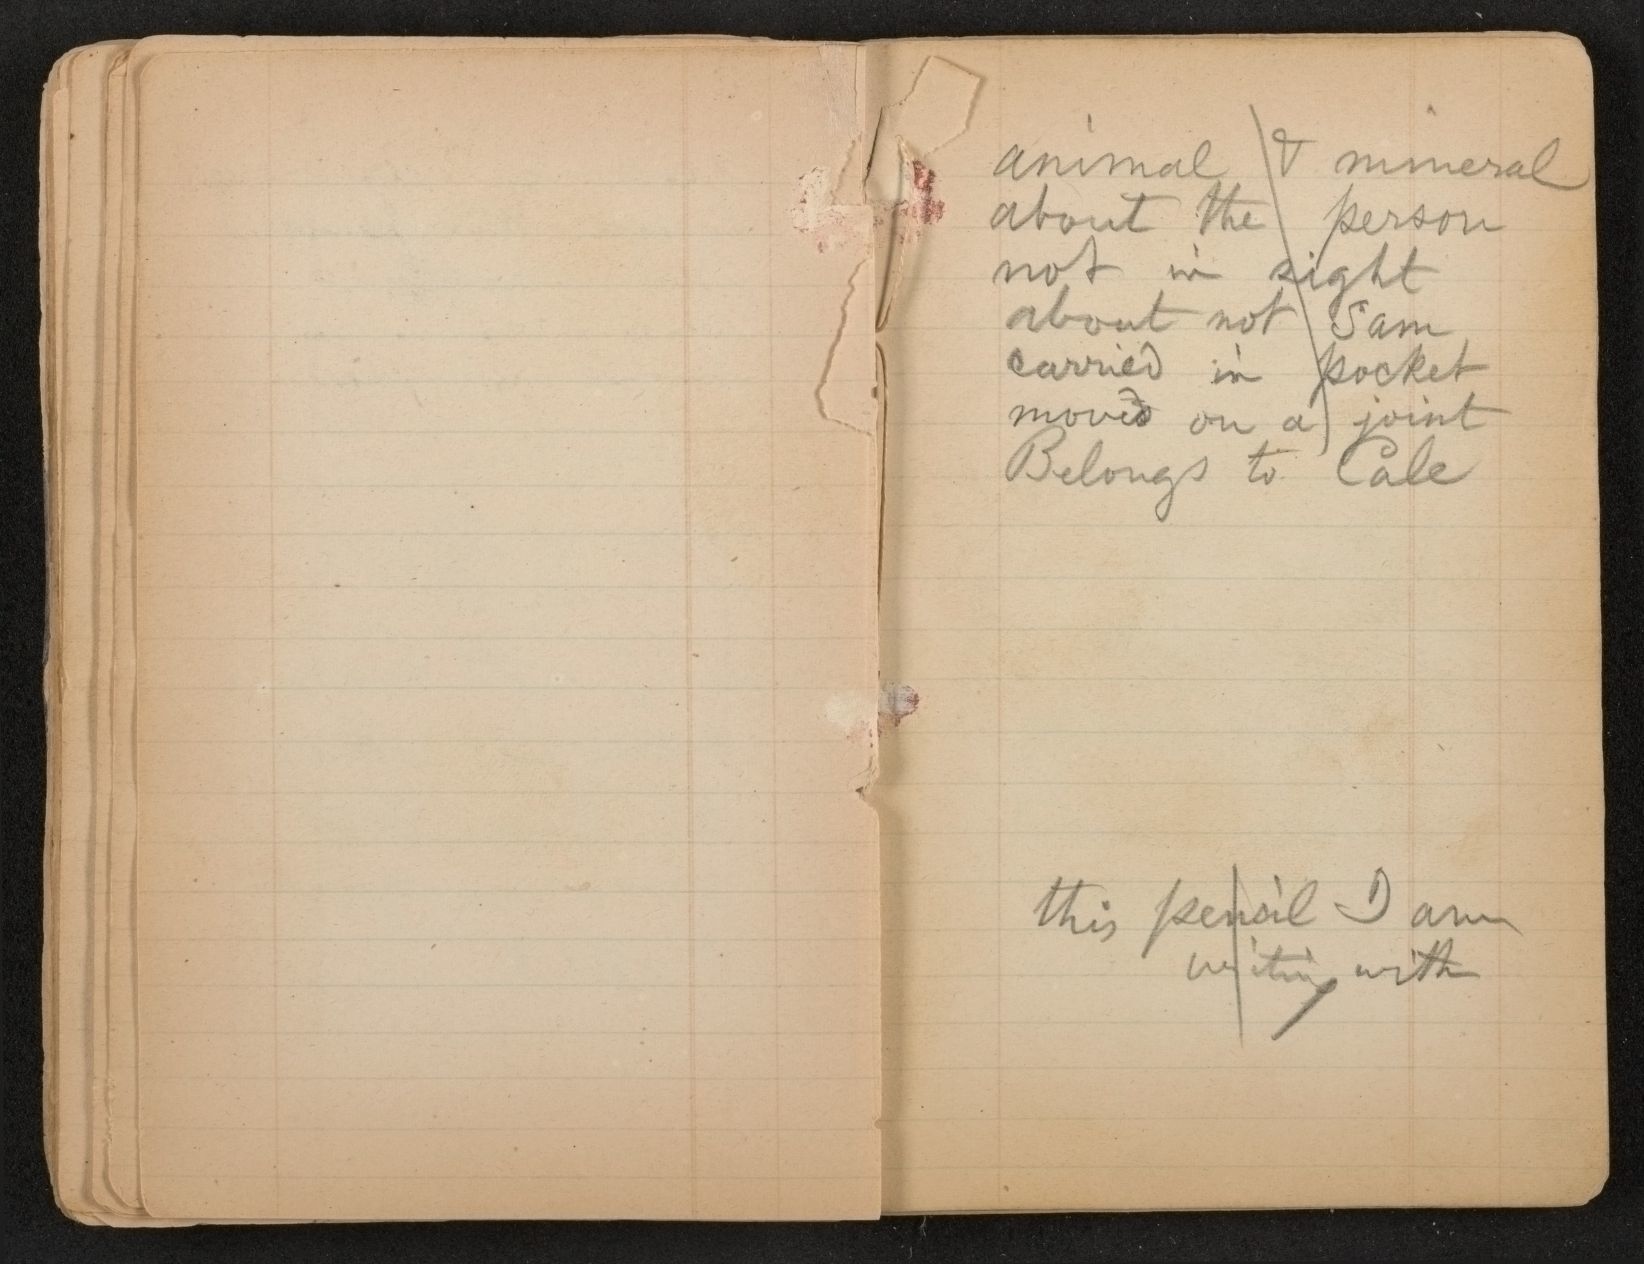 animal & mineral
about the person
not in sight
about not Sam
carried in pocket
moved on a joint
Belongs to Cale
this pencil I am
writing with